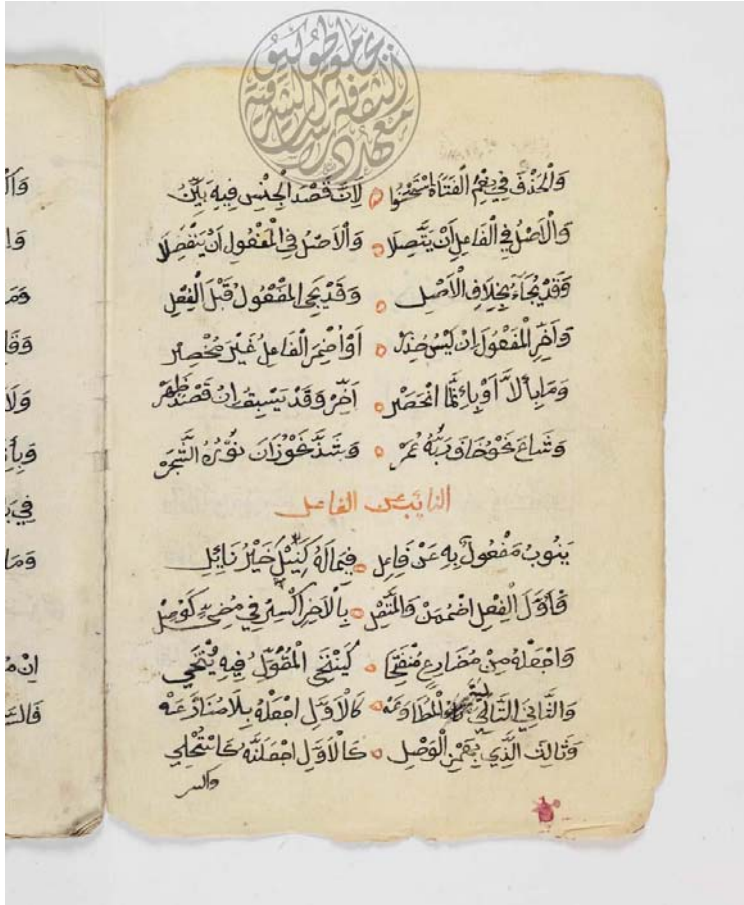 وَالْحَذْفَ فِي نِعْمَ الْفَتَاةُ اسْتَحْسَنُوا لِأَنَّ قَصْدَ الْجِنْسِ فِيهِ بَيِّنُ
وَالْأَصْلُ فِي الْفَاعِلِ أَنْ يَتَّصِلَا وَالْأَصْلُ فِي الْمَفْعُولِ أَنْ يَنْفَصِلَا
وَقَدْ يُجَاءُ بِخِلَافِ الْأَصْلِ وَقَدْ يَجِي الْمَفْعُولُ قَبْلَ الْفِعْلِ
وَأَخِّرِ الْمَفْعُولَ إِنْ لَبْسٌ حُذِرْ أَوْ أُضْمِرَ الْفَاعِلُ غَيْرَ مُنْحَصِرْ
وَمَا بِإِلَّا أَوْ بِإِنَّمَا انْحَصَرْ أَخِّرْ وَقَدْ يَسْبِقُ إِنْ قَصْدٌ ظَهَرْ
وَشَاعَ نَحْوُ خَافَ رَبَّهُ عُمَرْ وَشَذَّ نَحْوُ زَانَ نَوْرُهُ الشَّجَرْ
النائب عن الفاعل
يَنُوبُ مَفْعُولٌ بِهِ عَنْ فَاعِلِ فِيمَا لَهُ كَنِيلَ خَيْرُ نَائِلِ
فَأَوَّلَ الْفِعْلِ اضْمُمَنْ وَالْمُتَّصِلْ بِالْآخِرِ اكْسِرْ فِي مُضِيٍّ كَوُصِلْ
وَاجْعَلْهُ مِنْ مُضَارِعٍ مُنْفَتِحَا كَيَنْتَحِي الْمَقُولِ فِيهِ يُنْتَحَى
وَالثَّانِيَ التَّالِيَ الْمُطَاوَعَهْ كَالْأَوَّلِ اجْعَلْهُ بِلَا مُنَازَعَهْ
وَثَالِثَ الَّذِي بِهَمْزِ الْوَصْلِ كَالْأَوَّلِ اجْعَلَنَّهُ كَاسْتُحْلِي
واكسر